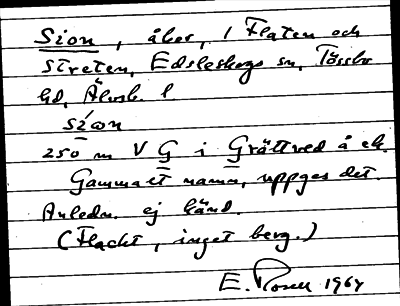 Sion, åker, i Flaten och
Streten, Edsleskogs sn, Tössbo
hd, Älvsb. l
síωn
250 m V G i Grättved å ek.
Gammalt namn, uppges det.
Anledn. ej känd.
(Flackt, inget berg.)
E. Rosell 1964